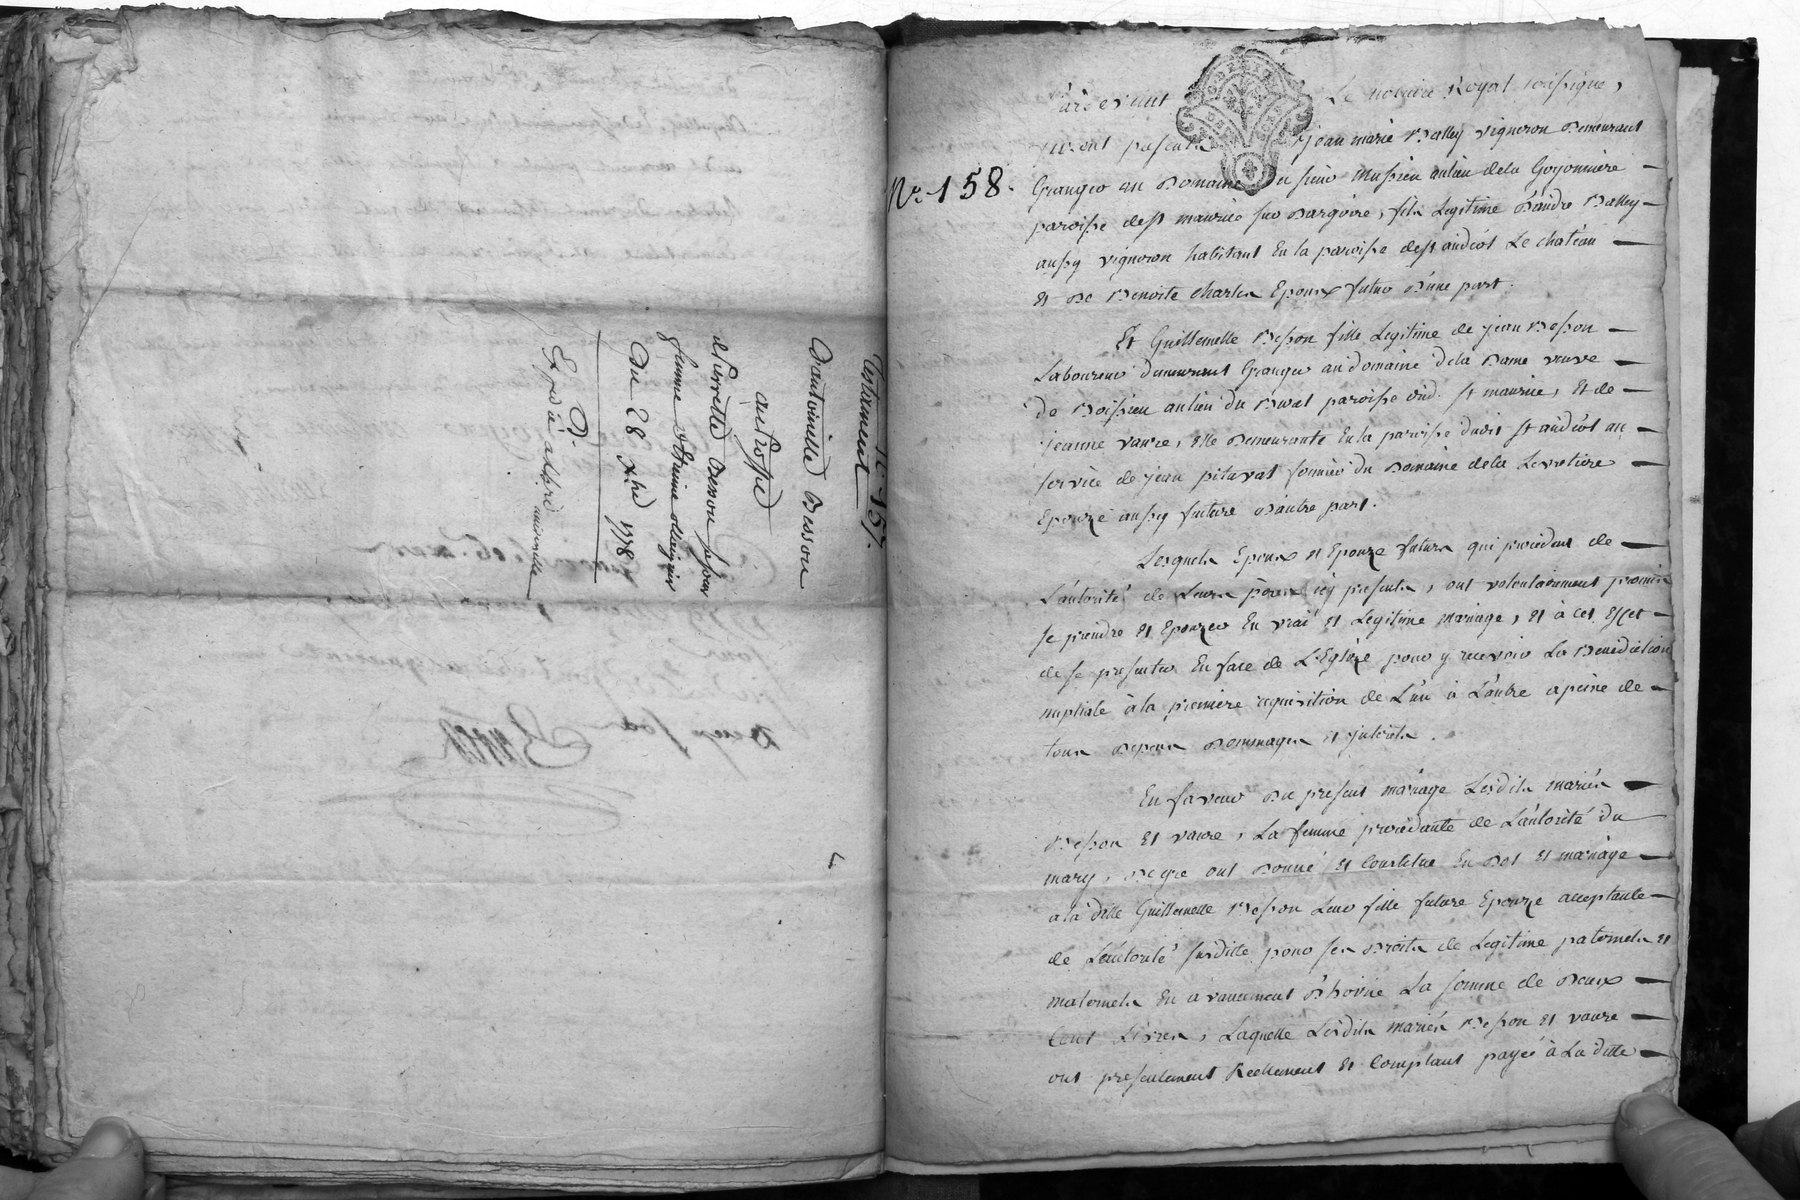 N.e 157.
Testament
D'antoinette Besson
au Proffit
de Pierrette Besson
femme d'Etienne
Du 28 Xbre 1778
Expedié a
N.o 158.
Pardevant Le notaire Royal soussigné,
furent presents Jean marie Balley vigneron demeurant
Granger au Domaine du sieur Mussieu au lieu de la Goyonniere
paroisse de st maurice sur Dargoire, fils Legitime d'andré Balley
aussy vigneron habitant En la paroisse de st andéol Le chatéau
Et De Benoite charlin Epoux futur D'une part.
Et Guillemette Besson fille Legitime de jean Besson
Laboureur demeurant Granger au domaine de la Dame veuve
De Boissieu au lieu du Buat paroisse dud. st maurice, Et de
jeanne vavre, elle Demeurante En la paroisse dudit st andéol au
service de jean pitaval fermier du Domaine de la Levretiere
Epouze aussy future D'autre part.
Lesquels Epoux et Epouze futurs qui procedent de
L'autorité de Leurs péres icy presents, ont volontairement promis
se prendre Et Epouzer En vrai Et Legitime mariage, Et à cet Effet
de se presenter En face de L'Eglize pour y recevoir La Benediction
nuptiale à la premiere requisition de L'un à L'autre a peine de
tous Depens Dommages et jnterêts.
En faveur Du present mariage Lesdits mariés
Besson Et vavre, La femme procédante de L'autorité du
mary, De gré ont Donné Et Constitué En Dot Et mariage
a la ditte Guillemette Besson Leur fille future Epouze acceptante
de L'autorité susditte pour ses Droits de Legitime paternels et
maternels En avancement d'hoirie La somme de Deux
Cent Livres, Laquelle Lesdits mariés Besson Et vavre
ont presentement Reellement Et Comptant payée à La ditte